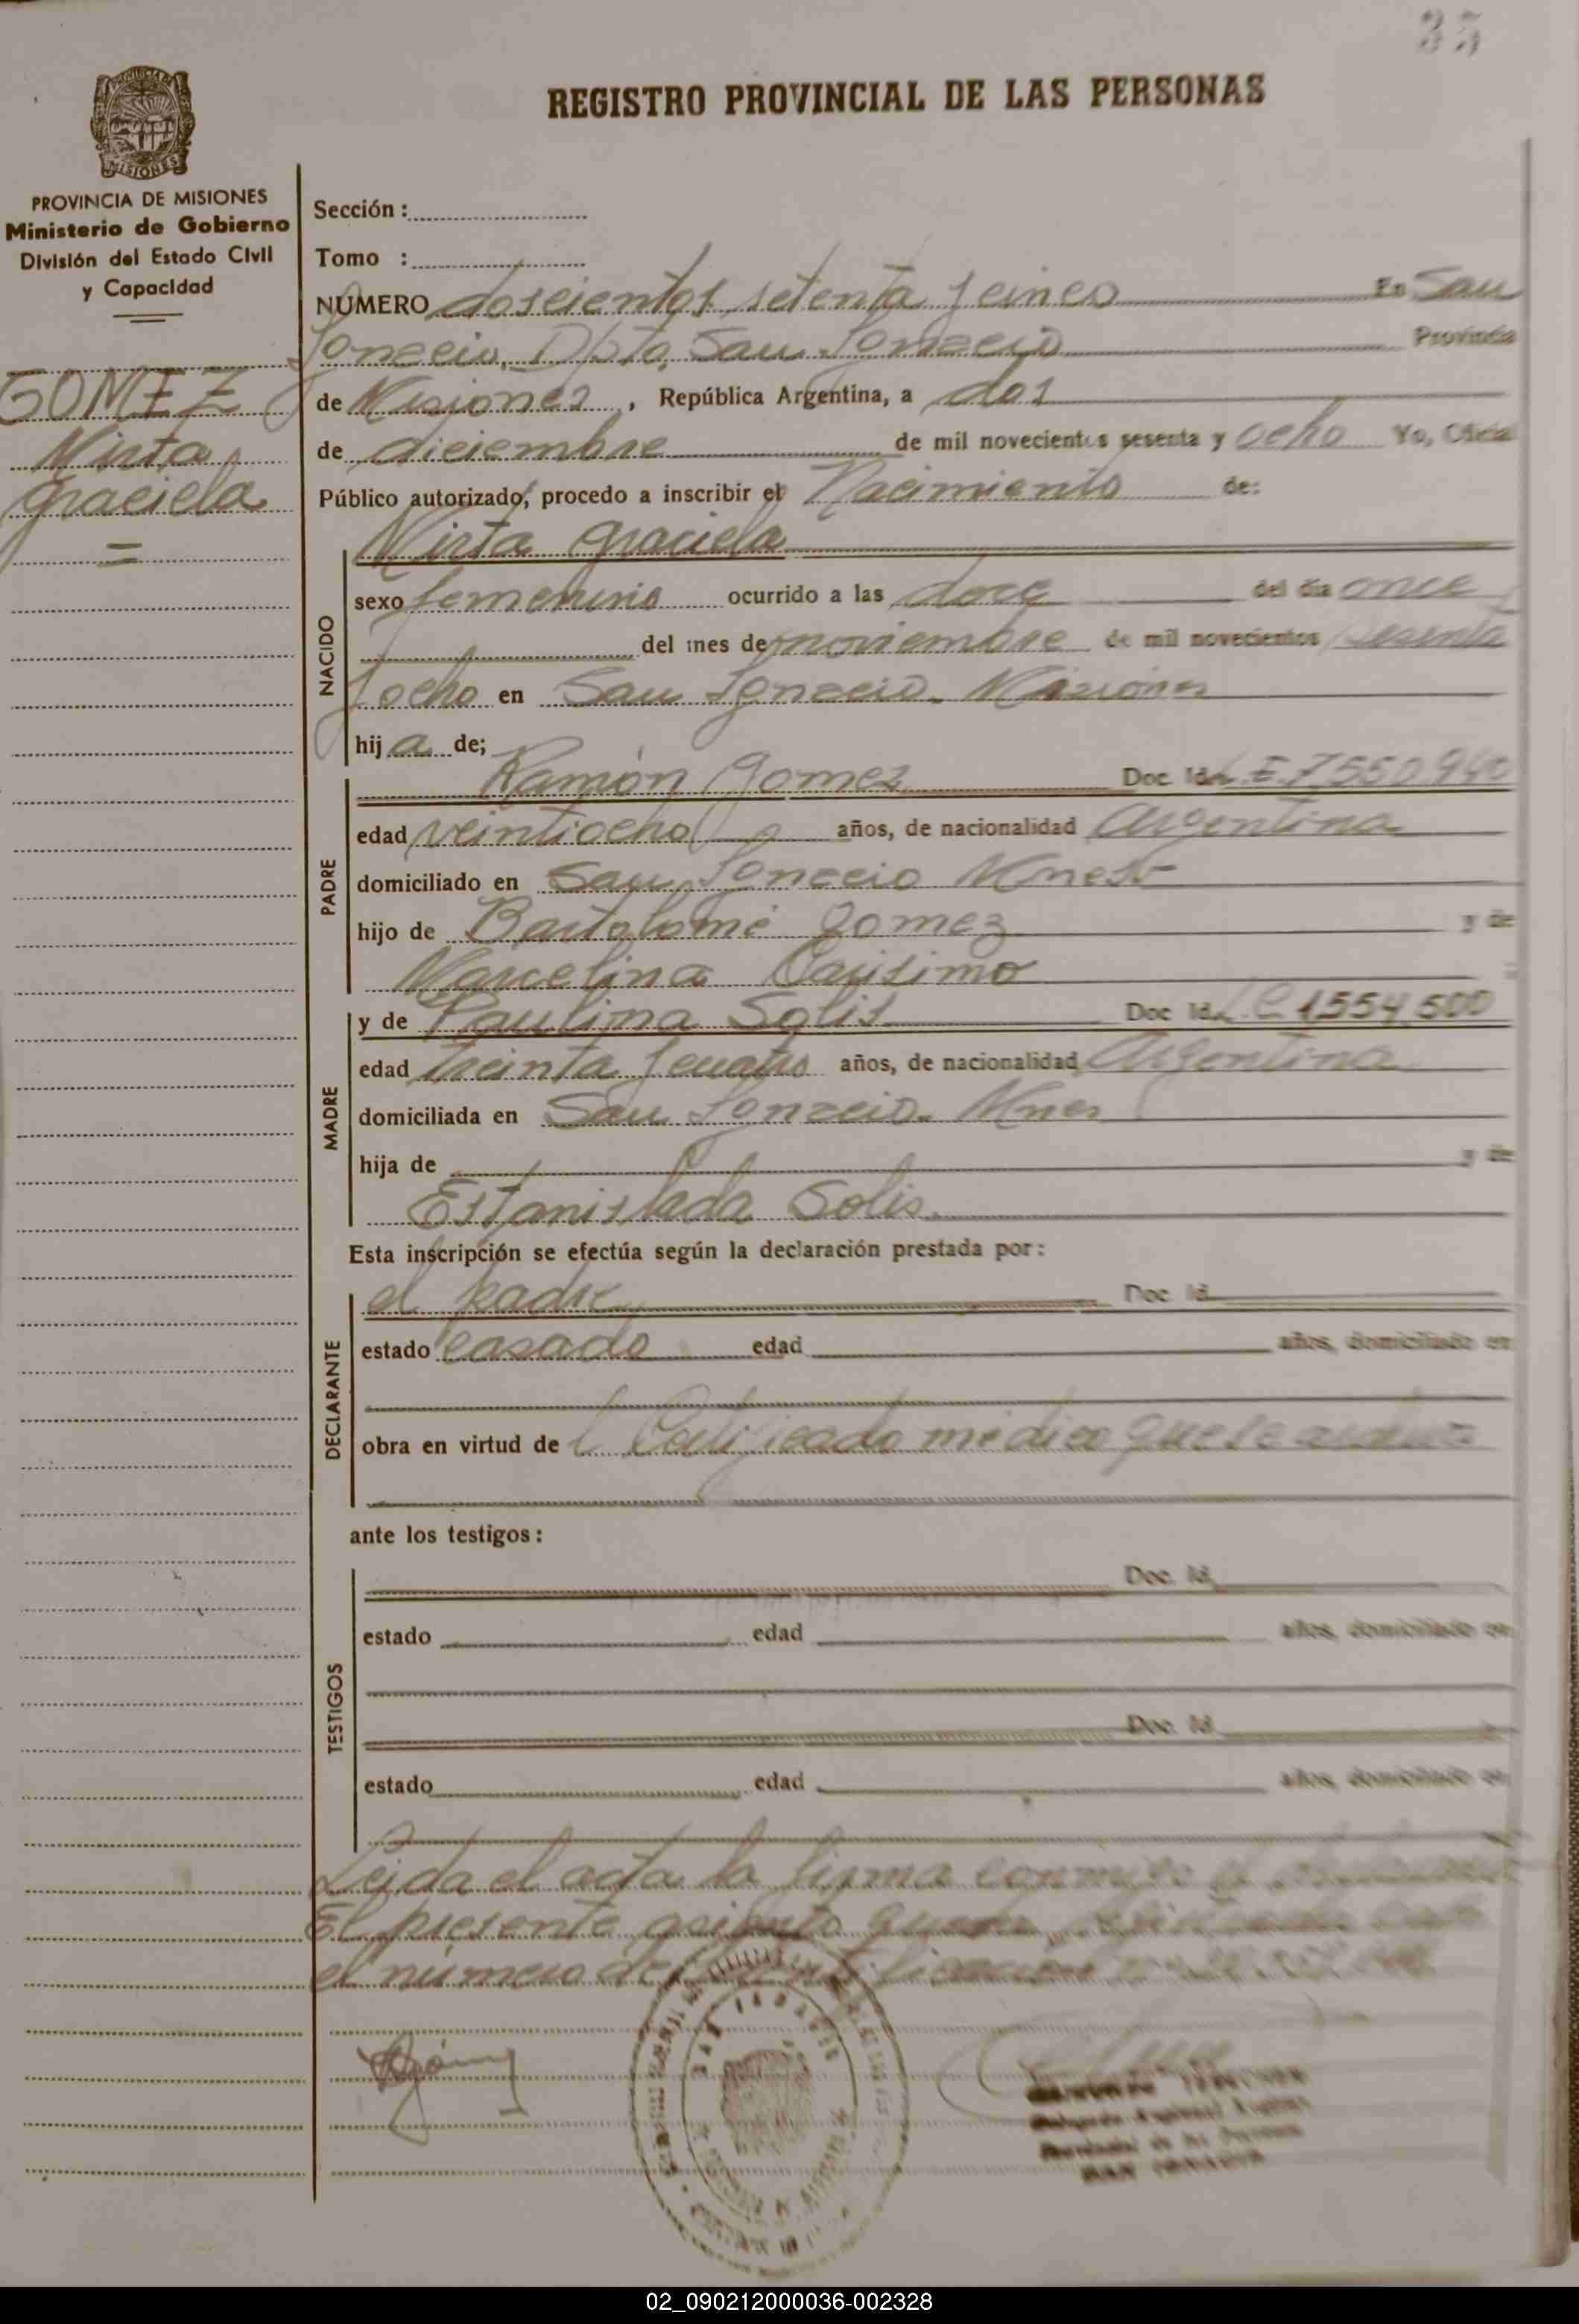 35
REGISTRO PROVINCIAL DE LAS PERSONAS
MISIONES
PROVINCIA DE MISIONES
Ministerio de Gobierno
División del Estado Civil
y Capacidad
GOMEZ
Mirta
Graciela
=
Sección :
Tomo :
NÚMERO doscientos setenta y cinco En San
Ignacio, Dpto, San Ignacio Provincia
de Misiones, República Argentina, a dos
de diciembre de mil novecientos sesenta y ocho Yo, Oficial
Público autorizado, procedo a inscribir el Nacimiento de:
Mirta Graciela
NACIDO
sexo femenino ocurrido a las doce del día once
del mes de noviembre de mil novecientos sesenta
y ocho en San Ignacio. Misiones
hija de;
PADRE
Ramón Gomez Doc Id. L.E 7.550.940
edad veintiocho años, de nacionalidad Argentina
domiciliado en San Ignacio Mnes
hijo de Bartolomé Gomez y de
Marcelina Carisimo
MADRE
y de Paulina Solis Doc Id. L.C 1,554,500
edad treinta y cuatro años, de nacionalidad Argentina
domiciliada en San Ignacio. Mnes
hija de y de
Estanislada Solis.
Esta inscripción se efectúa según la declaración prestada por:
DECLARANTE
el padre Doc Id.
estado casado edad años, domiciliado en
obra en virtud de l Certificado médico que se
ante los testigos:
TESTIGOS
Doc. Id.
estado edad años, domiciliado en
Doc. Id
estado edad años, domiciliado en
Leida el acta la firma conmigo el
El presente asiento queda
el número de
SAN IGNACIO
02_090212000036-002328